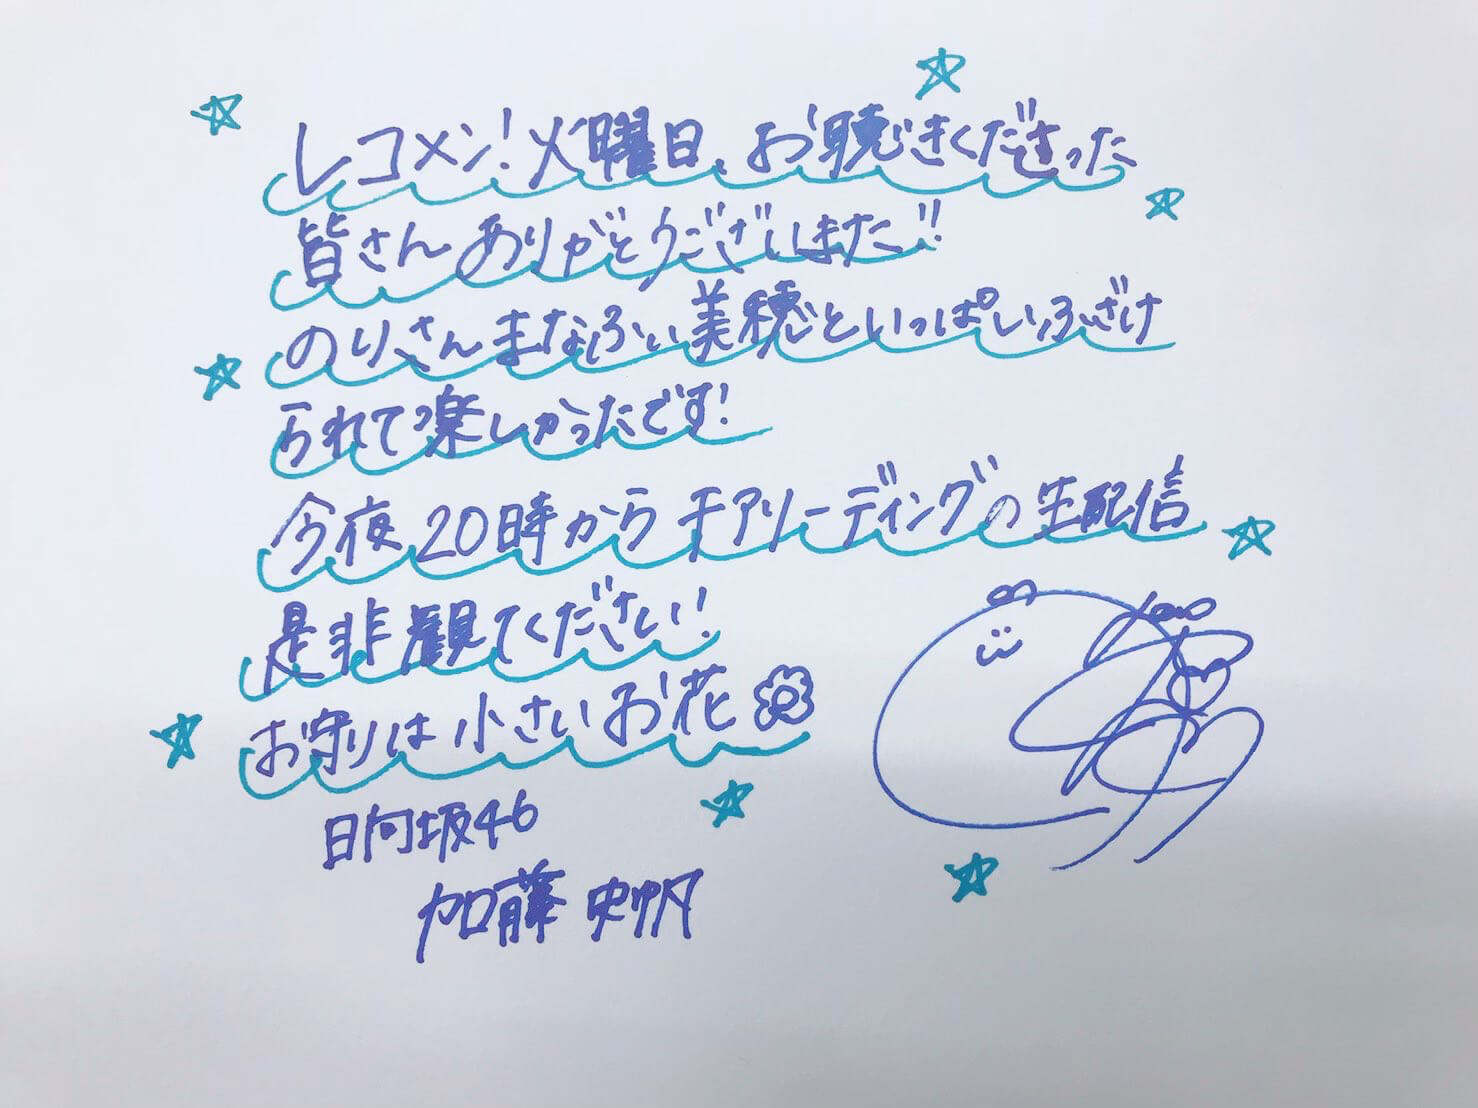 レコメン!火曜日、お聴きくださった
皆さんありがとうございました!!
のりさんまなふぃ美穂といっぱいふざけ
られて楽しかったです!
今夜20時からチアリーディングの生配信
是非観てください!
お守りは小さいお花
日向坂46
加藤 史帆